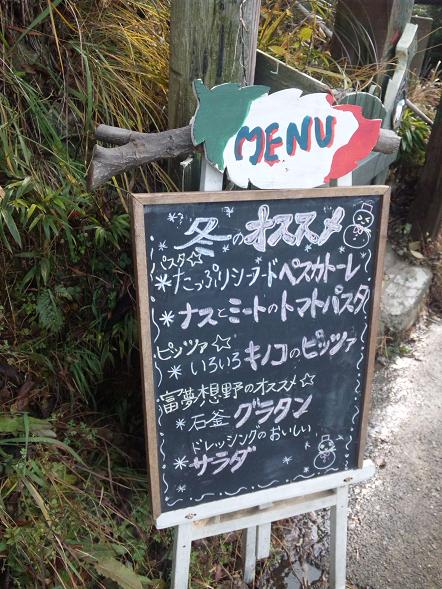 MENU
冬のオススメ
パスタ☆
*たっぷりシーフードペスカトーレ
*ナスとミートのトマトパスタ
ピッツァ☆
*いろいろキノコのピッツァ
富夢想野のオススメ☆
*石釜グラタン
ドレッシングのおいしい
*サラダ